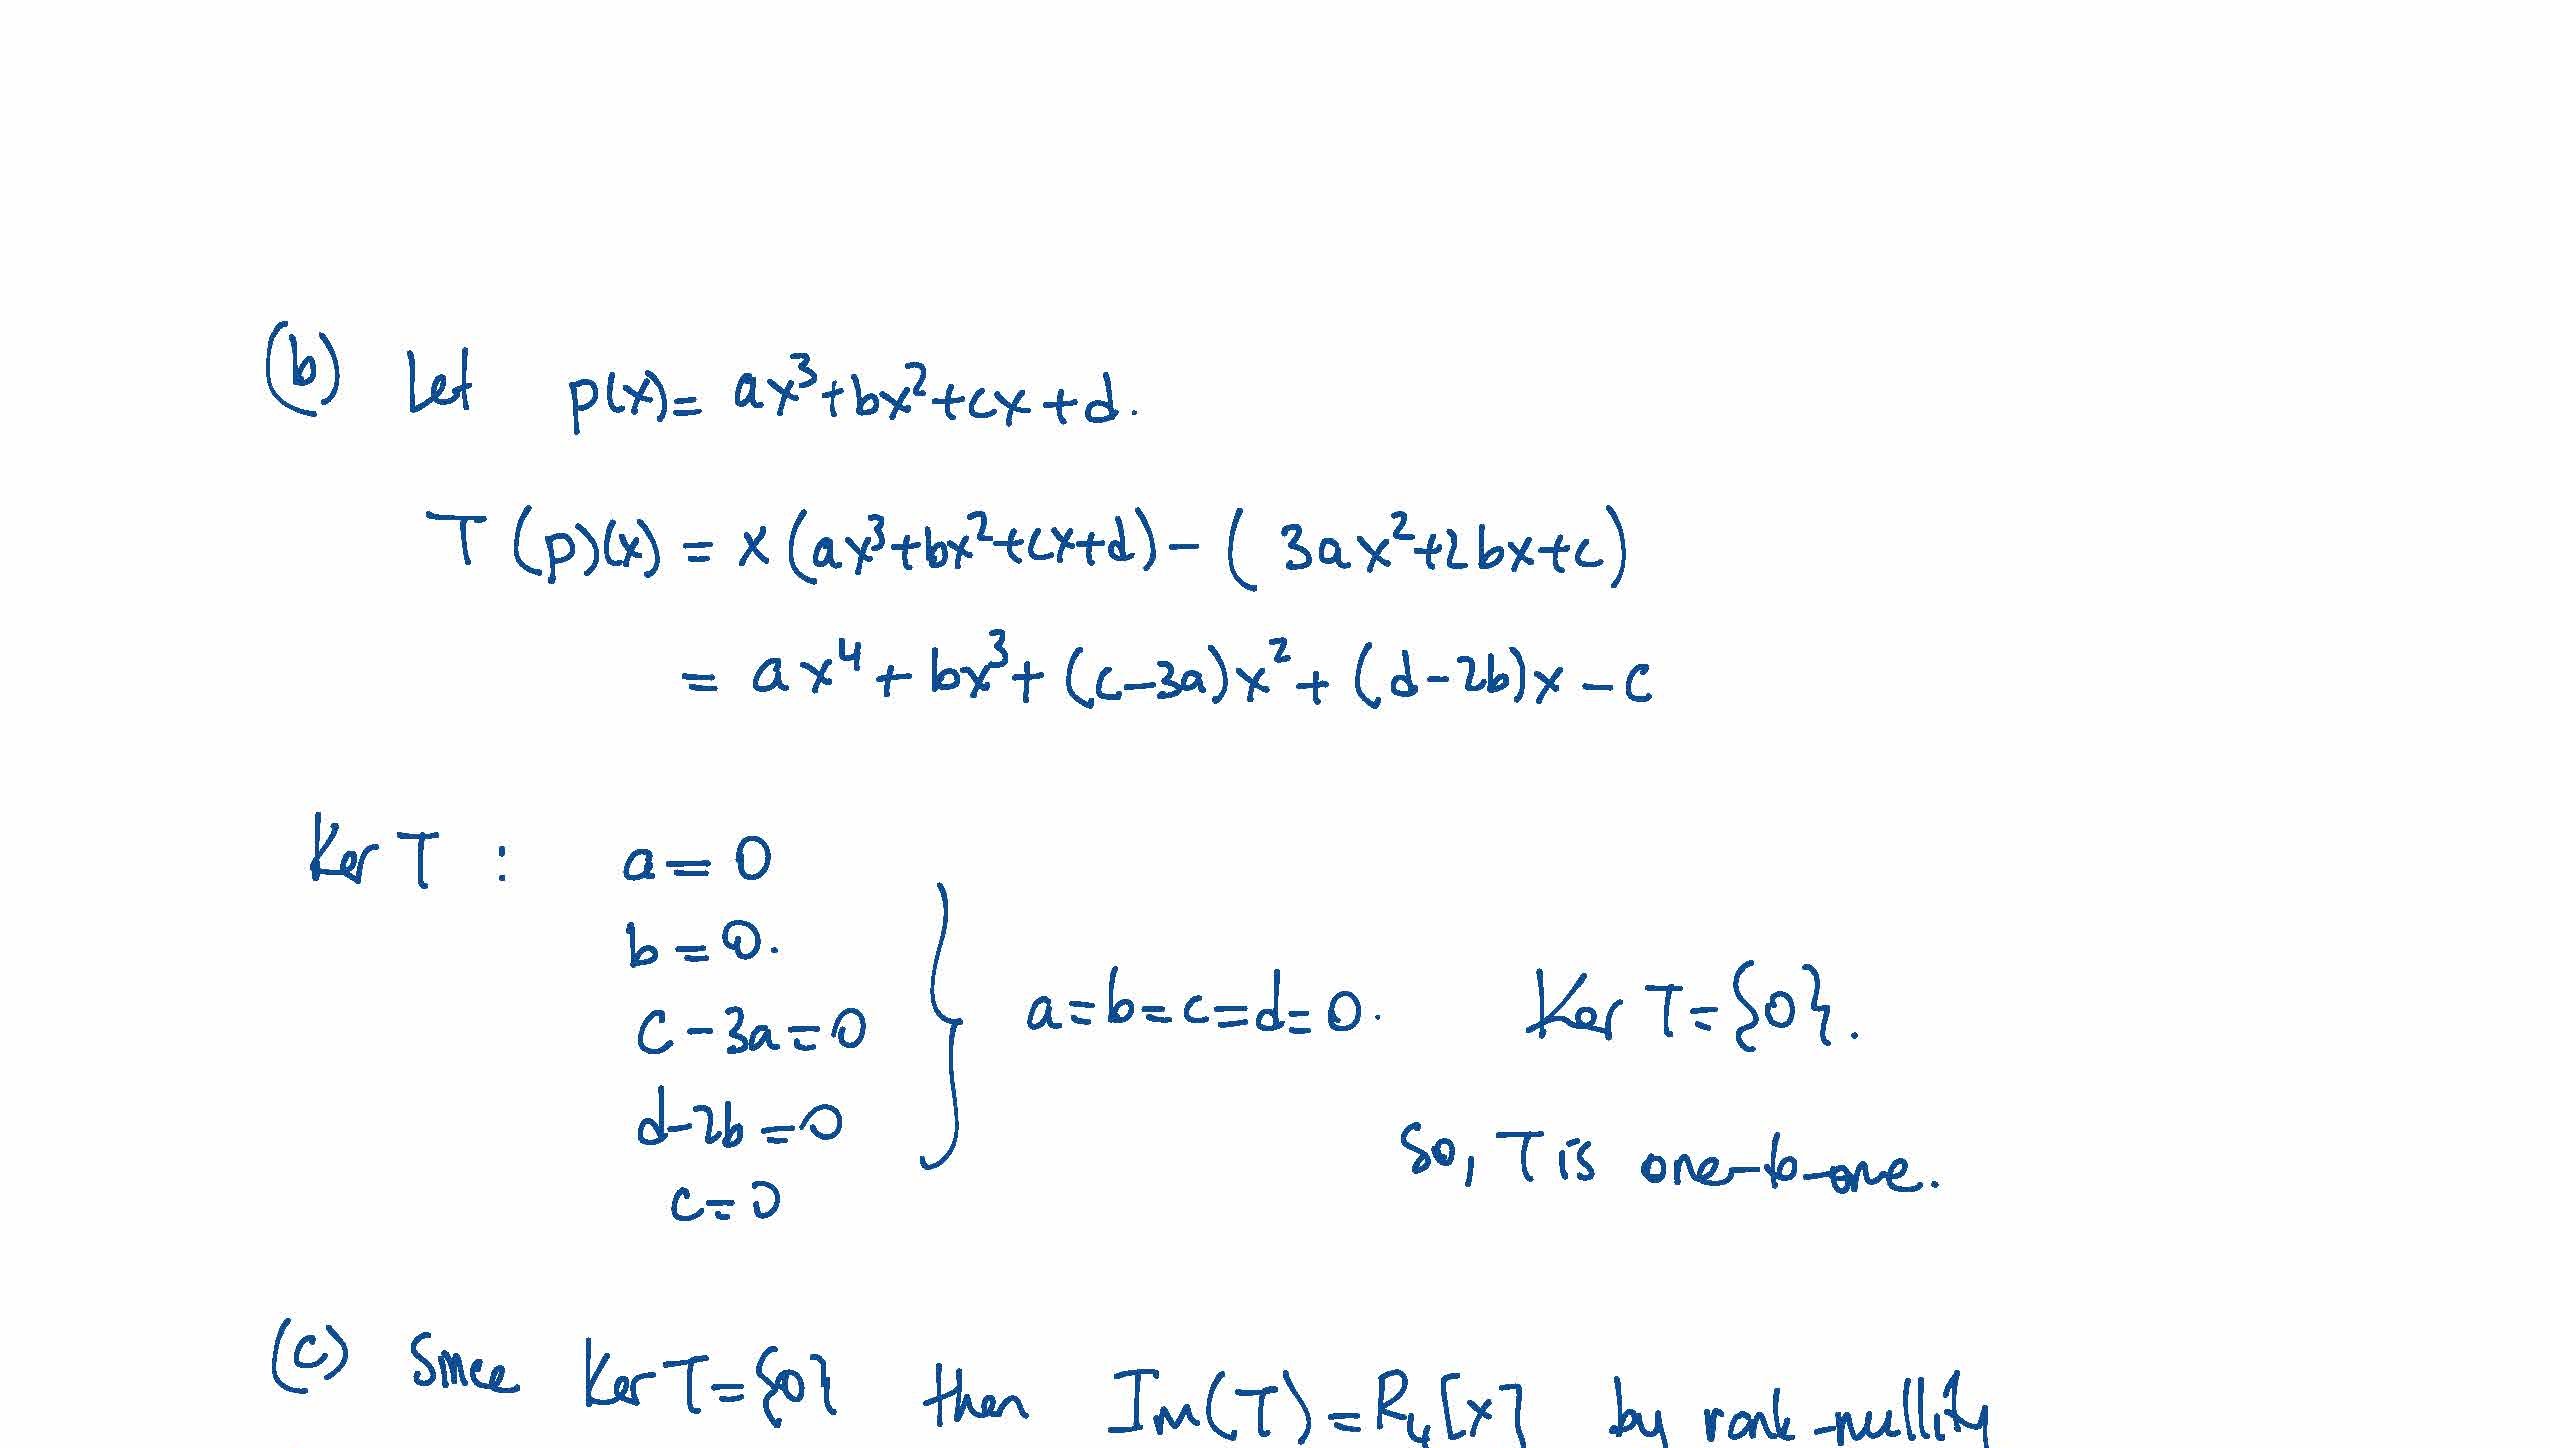 (b) Let p(x) = ax³+bx²+cx+d.
T(p)(x) = x(ax³+bx²+cx+d) - (3ax²+2bx+c)
= ax⁴ + bx³ + (c-3a)x² + (d-2b)x - c
Ker T : a = 0
b = 0.
c - 3a = 0
a=b=c=d=0. Ker T = {0}.
d-2b = 0
So, T is one-to-one.
c = 0
(c) Since Ker T = {0} then Im(T) = R₄[x] by rank-nullity